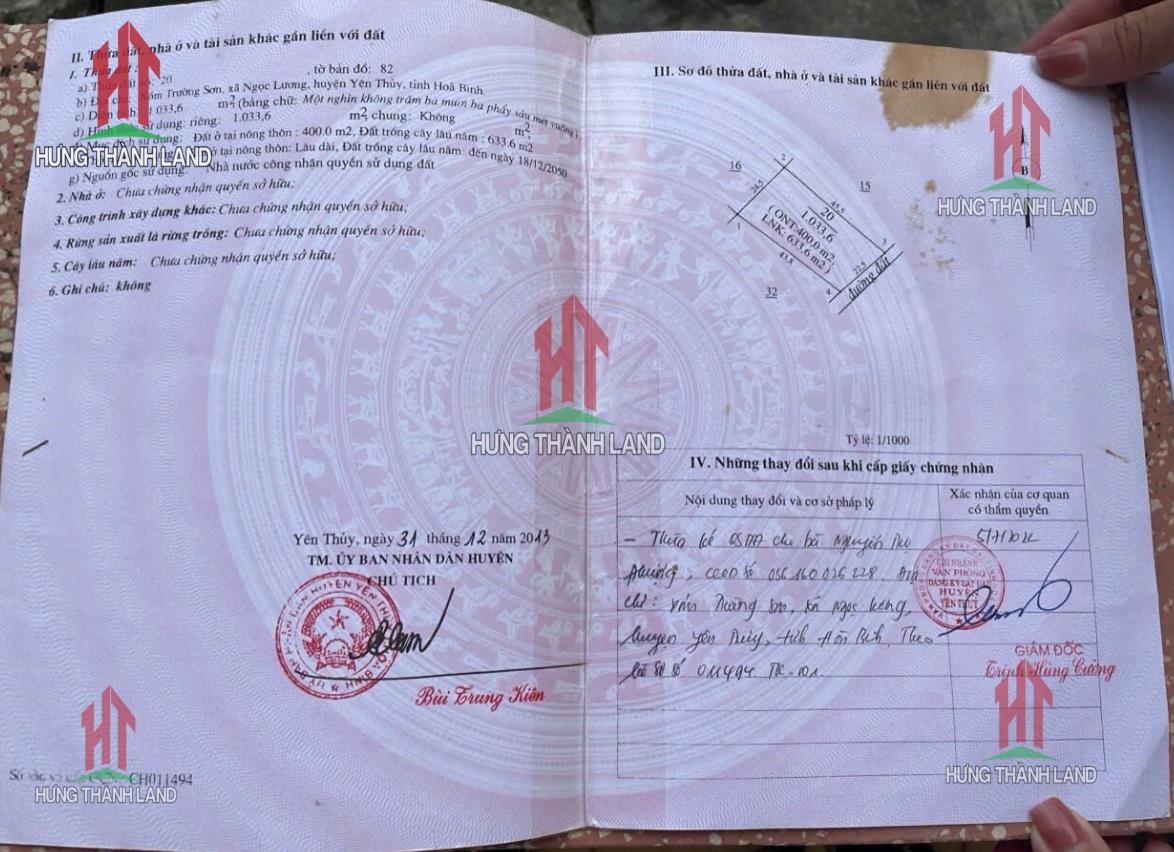 II. Thửa đất, nhà ở và tài sản khác gắn liền với đất
1. Thửa đất:
a) Thửa đất số: 20 , tờ bản đồ: 82
b) Địa chỉ: Xóm Trường Sơn, xã Ngọc Lương, huyện Yên Thủy, tỉnh Hoà Bình.
c) Diện tích: 1.033,6 m2 (bằng chữ: Một nghìn không trăm ba mươi ba phẩy sáu mét vuông)
d) Hình thức sử dụng: riêng: 1.033,6 m2 chung: Không m2
đ) Mục đích sử dụng: Đất ở tại nông thôn : 400.0 m2, Đất trồng cây lâu năm : 633.6 m2
ở tại nông thôn: Lâu dài, Đất trồng cây lâu năm: đến ngày 18/12/2050
g) Nguồn gốc sử dụng: Nhà nước công nhận quyền sử dụng đất
2. Nhà ở: Chưa chứng nhận quyền sở hữu;
3. Công trình xây dựng khác: Chưa chứng nhận quyền sở hữu;
4. Rừng sản xuất là rừng trồng: Chưa chứng nhận quyền sở hữu;
5. Cây lâu năm: Chưa chứng nhận quyền sở hữu;
6. Ghi chú: không
Yên Thủy, ngày 31 tháng 12 năm 2013
TM. ỦY BAN NHÂN DÂN HUYỆN
CHỦ TỊCH
Bùi Trung Kiên
CH011494
III. Sơ đồ thửa đất, nhà ở và tài sản khác gắn liền với đất
B
16
2
15
24,5
45,5
20
1.033,6
( ONT:400.0 m2;
LNK: 633,6 m2 )
1
3
43,8
22,5
4
đường đất
32
Tỷ lệ: 1/1000
IV. Những thay đổi sau khi cấp giấy chứng nhận
Nội dung thay đổi và cơ sở pháp lý
Xác nhận của cơ quan
có thẩm quyền
- Thừa kế QSDĐ cho bà Nguyễn Thị
CCCD số
chỉ: xóm Trường Sơn, xã Ngọc Lương,
huyện Yên Thủy, tỉnh Hòa Bình. Theo
hồ sơ số 011494
CHI NHÁNH
VĂN PHÒNG
ĐĂNG KÝ ĐẤT ĐAI
HUYỆN
YÊN THỦY
GIÁM ĐỐC
Trịnh Hùng Cường
HƯNG THÀNH LAND
HƯNG THÀNH LAND
HƯNG THÀNH LAND
HƯNG THÀNH LAND
HƯNG THÀNH LAND